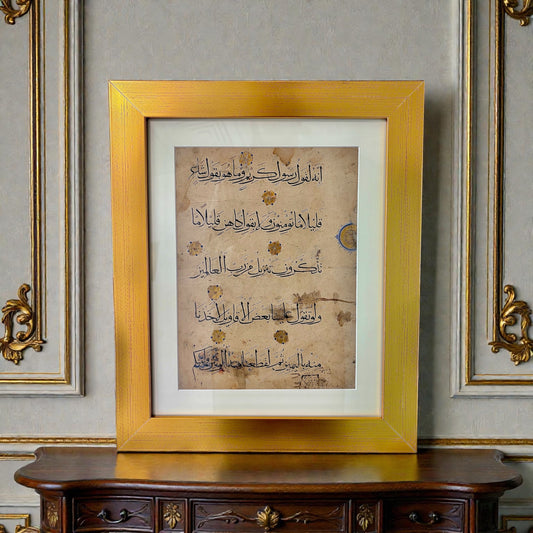 انه لقول رسول كريم وما هو بقول شاعر
قليلا ما تومنون ولا بقول كاهن قليلا ما
تذكرون تنزيل من رب العالمين
ولو تقول علينا بعض الاقاويل لاخذنا
منه باليمين ثم لقطعنا منه الوتين